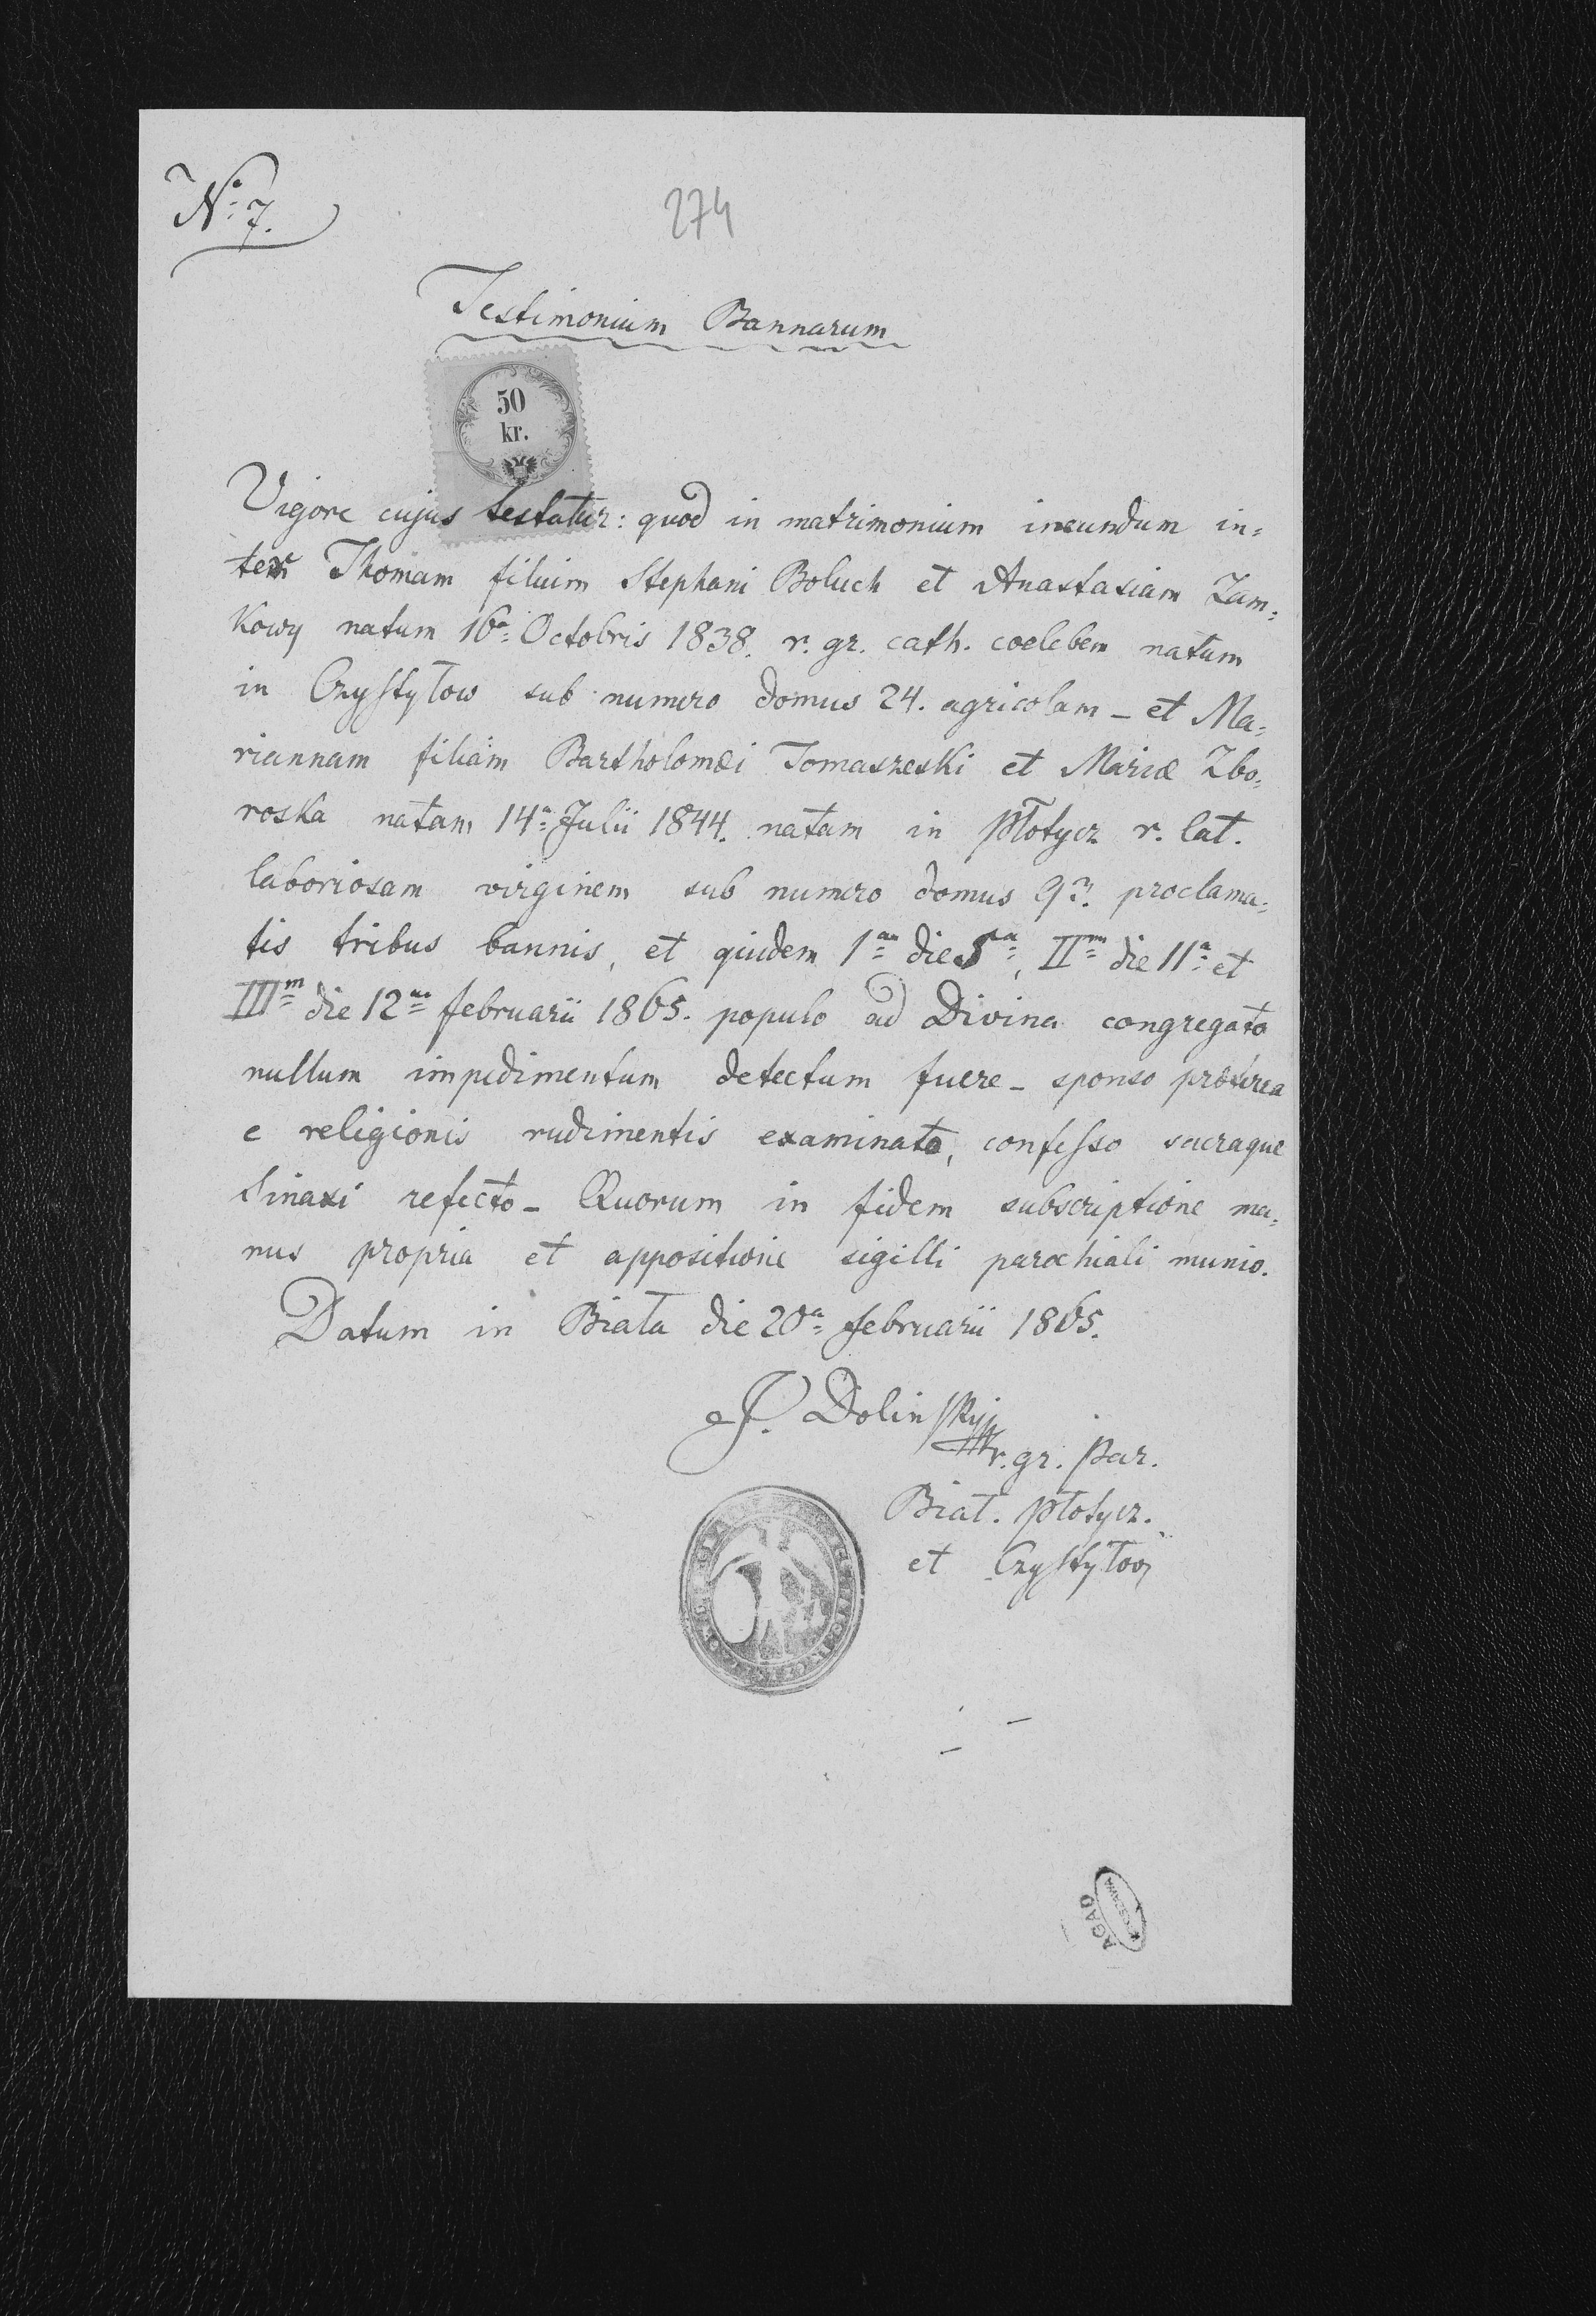 No 7.
274
Testimonium Bannarum
50
kr.
Vigore cujus testatur: quod in matrimonium ineundum in=
ter Thomam filium Stephani Boluch et Anastasiam Zam=
kowy natum 16a Octobris 1838. r. gr. cath. coelebem natum
in Czystyłow sub numero domus 24. agricolam _ et Ma=
riannam filiam Bartholomæi Tomaszeski et Mariæ Zbo=
roska natam 14a Julii 1844. natam in Płotycz r. lat.
laboriosam virginem sub numero domus 93. proclama=
tis tribus bannis, et quidem 1am die 5ta, IIm die 11a et
IIIm die 12ma februarii 1865. populo ad Divina congregato
nullum impedimentum detectum fuere _ sponso præterea
e religionis rudimentis examinato, confesso sacraque
Sinaxi refecto _ Quorum in fidem subscriptione ma=
nus propria et appositione sigilli parochiali munio.
Datum in Biała die 20a februarii 1865.
J. Dolinskyj
r. gr. Par.
Biał. Płotycz.
et Czystyłow
AGAD